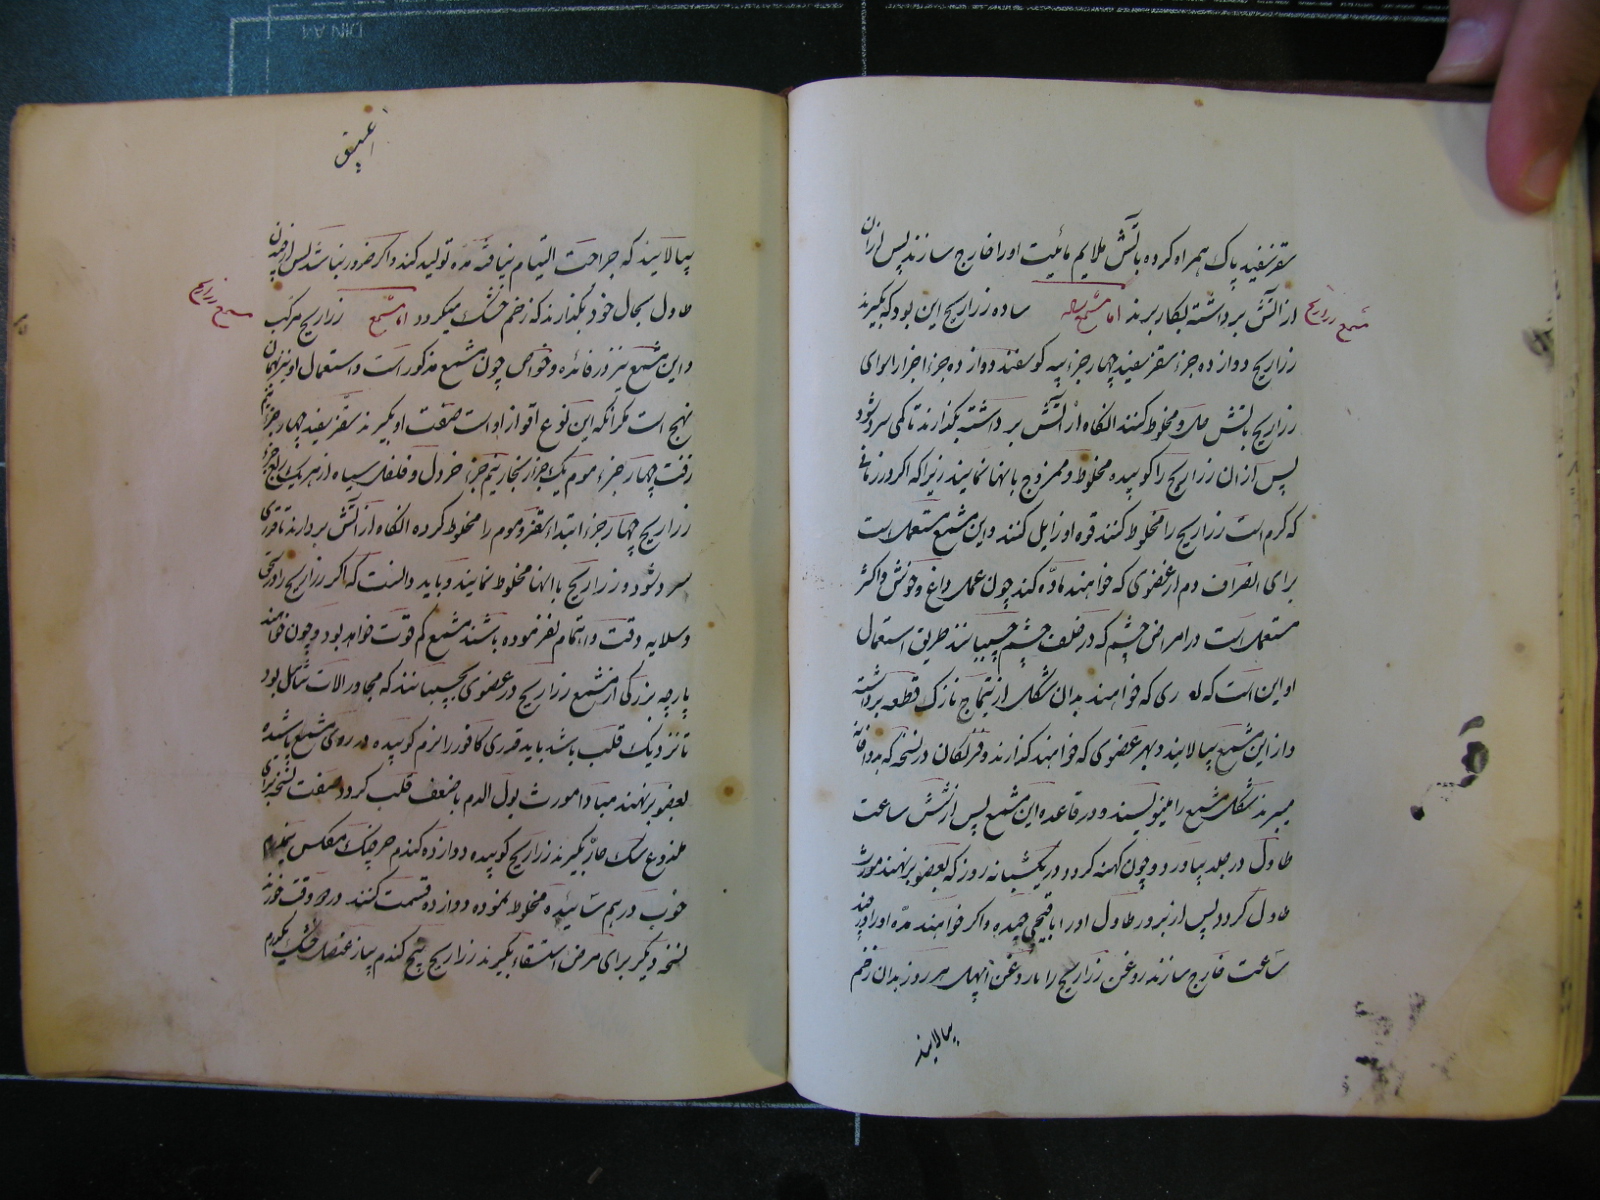 سقز سفید پاک همراه کرده باتش ملایم مائیت او را خارج سازند پس ازان
از آتش برداشته بکار برند اما مشمع ساده زراریح این بود که بگیرند
مشمع زراریح
زراریح دوازده جزء سقز سفید چهار جزء پیه کوسفند دوازده جزء اجزا را سوای
زراریح باتش حل و مخلوط کنند انکاه از آتش برداشته بکذارند تا کمی سرد شود
پس ازان زراریح را کوبیده مخلوط و ممزوج بانها نمایند زیرا که اکر در زمانی
که کرم است زراریح را مخلوط کنند قوه او زایل کنند و این مشمع مستعمل است
برای انصراف دم از عضوی که خواهند ماده کند چون عمل داغ و خونش و اکثر
مستعمل است در امراض چشم که در خلف چشم چسبانند طریق استعمال
او این است که بطوری که خواهند بدان شکل از تیماج نازک قطعه برداشته
و از این مشمع بیالایند و بهر عضوی که خواهند کذارند و فرنکان در نسخه که بدواخانه
میبرند شکل مشمع را مینویسند و در قاعده این مشمع پس از شش ساعت
طاول در جلد بیاورد و چون کهنه کردد در یکشبانه روز که بعضو برنهند مورث
طاول کردد پس از بروز طاول او را با قیچی چیده و اکر خواهند مده او را در چند
ساعت خارج سازند روغن زراریح را با روغن ابهل هر روز بدان زخم
بیالایند
بیالایند که جراحت التیام نیافته مده تولید کند و اکر ضرور نباشد پس از چیدن
طاول بحال خود بکذارند که زخم خشک میکردد اما مشمع زراریح مرکب
مشمع زراریح
و این مشمع نیز در فائده و خواص چون مشمع مذکور است و استعمال او نیز بهمان
نهج است مکر انکه این نوع اقوا از او است صفت او بکیرند سقز سفید چهار جزء
زفت چهار جزء موم یک جزء زنجار نیم جزء خردل و فلفل سیاه از هر یک ربع جزء
زراریح چهار جزء ابتدا سقز و موم را مخلوط کرده انکاه از آتش بردارند تا قدری
سرد شود و زراریح با انها مخلوط نمایند و باید دانست که اکر زراریح را در سحق
و سلایه دقت و اهتمام بفزموده باشند مشمع کم قوت خواهد بود و چون خواهند
پارچه بزرکی از مشمع زراریح در عضوی بچسبانند که مجاور الات شامل بود
تا نزدیک قلب باشد باید قدری کافور را نرم کوبیده در روی مشمع پاشیده
بعضو برنهند مبادا مورث بول الدم با ضعف قلب کردد صفت نسخه برای
ملذوع سک هار بکیرند زراریح کوبیده دوازده کندم خرچنک مکلس پنجدرم
خوب درهم سائیده مخلوط نموده دوازده قسمت کنند در دو وقت خورند
نسخه دیکر برای مرض استسقاء بکیرند زراریح پنج کندم پیاز عنصل خشک یکدرم